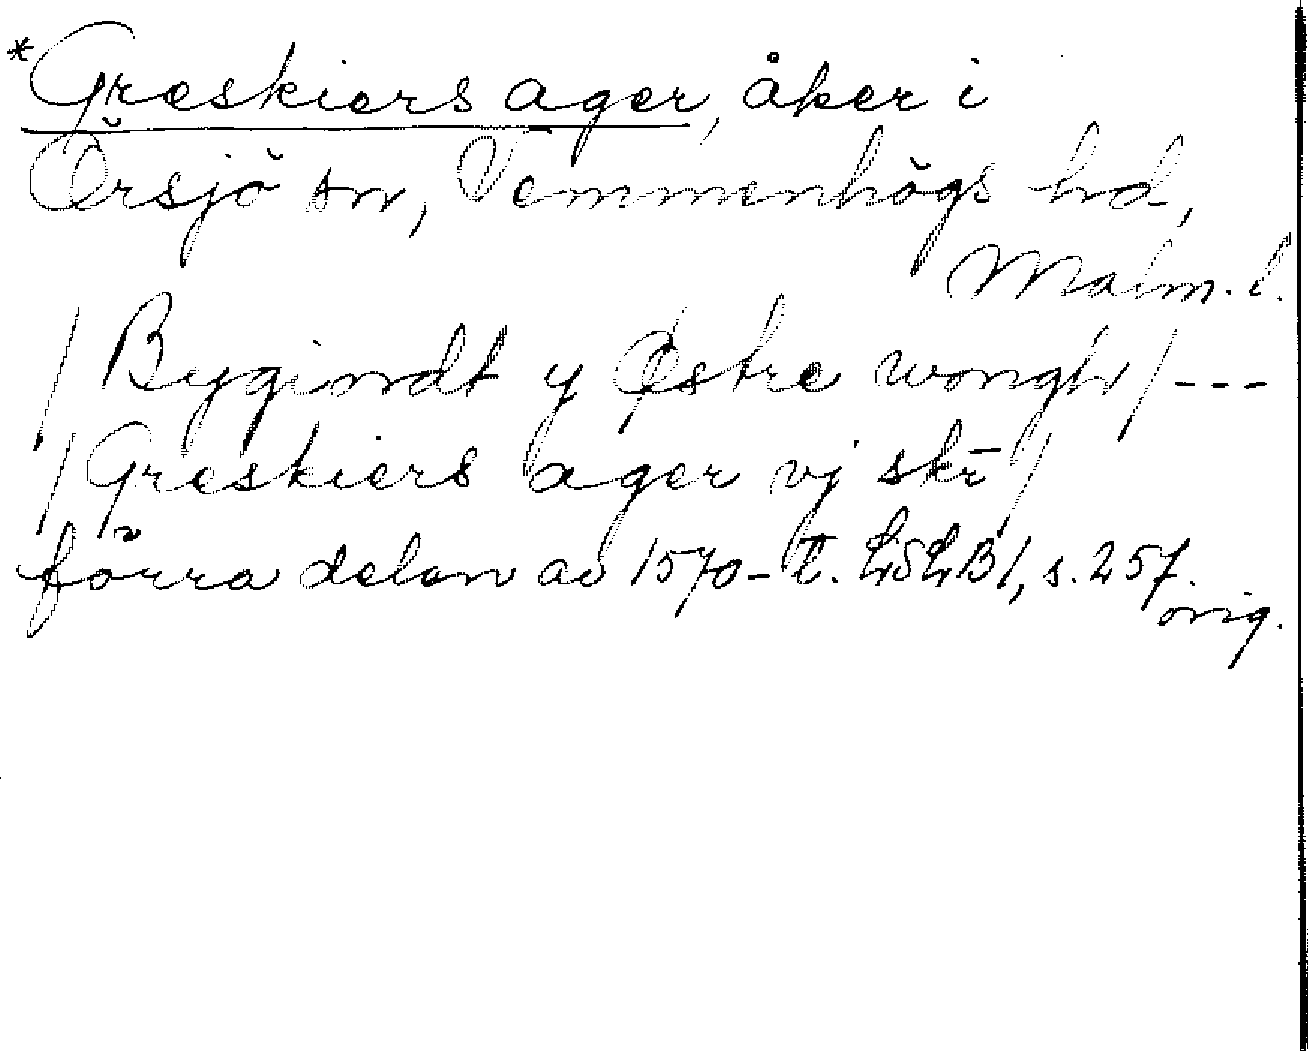 *Greskiers ager, åker i
Örsjö sn, Vemmenhögs hd,
Malm. l.
/ Bygindt y Østre wongh / ---
/ Greskiers ager vj skr̄ /
förra delen av 1570-t. LSLB 1, s. 257.
orig.